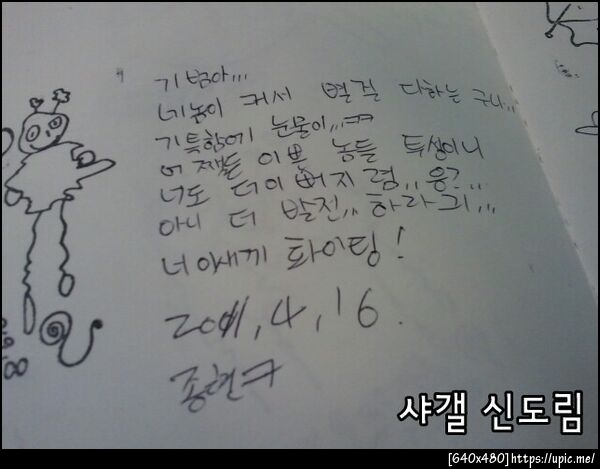 기범아...
네놈이 커서 별걸 다하는구나...
기특함에 눈물이...ㅋㅋ
어쨌든 이쁜 놈들 투성이니
너도 더 이뻐지렴.. 응?..
아니 더 발전.. 하라긔...
너 이새끼 화이팅!
2011, 4, 16.
종현ㅋ
샤갤 신도림
[640x480]https://upic.me/